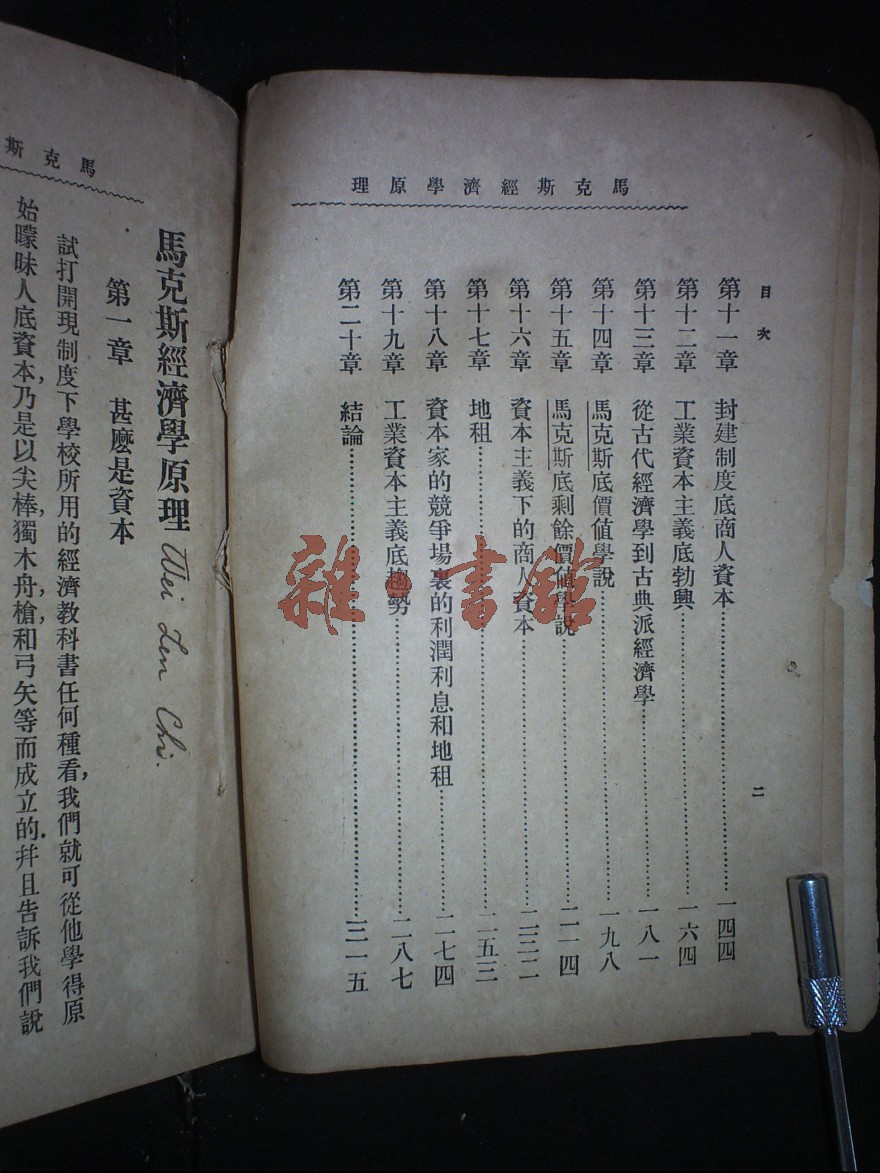 馬克斯經濟學原理
目次
第十一章 封建制度底商人資本……一四四
第十二章 工業資本主義底勃興……一六四
第十三章 從古代經濟學到古典派經濟學……一八一
第十四章 馬克斯底價值學說……一九八
第十五章 馬克斯底剩餘價值學說……二一四
第十六章 資本主義下的商人資本……二三二
第十七章 地租……二五三
第十八章 資本家的競爭場裏的利潤利息和地租……二七四
第十九章 工業資本主義底趨勢……二八七
第二十章 結論……三一五
二
雜·書館
馬克斯
馬克斯經濟學原理
Wei Zen Chi.
第一章 甚麼是資本
試打開現制度下學校所用的經濟教科書任何種看,我們就可從他學得原
始矇昧人底資本,乃是以尖棒,獨木舟,槍和弓矢等而成立的.幷且告訴我們說